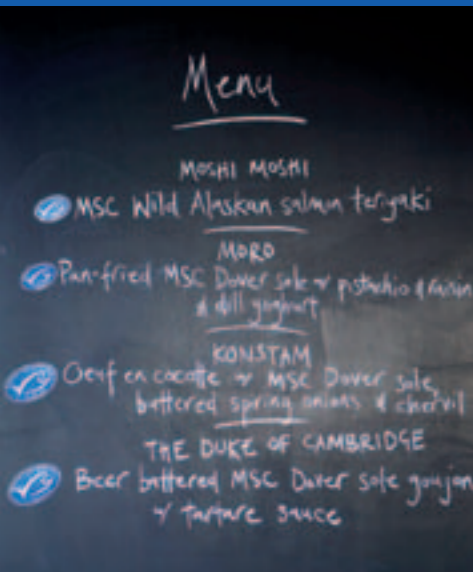 Menu
MOSHI MOSHI
MSC Wild Alaskan salmon teriyaki
MORO
Pan-fried MSC Dover sole w pistachio & raisin
& dill yoghurt
KONSTAM
Oeuf en cocotte w MSC Dover sole,
buttered spring onions & chervil
THE DUKE OF CAMBRIDGE
Beer battered MSC Dover sole goujon
w tartare sauce